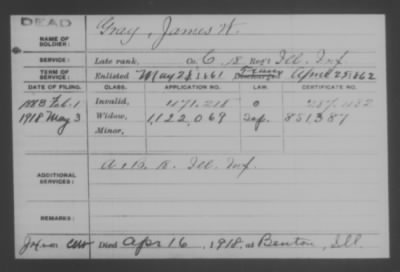 DEAD
NAME OF SOLDIER: Gray, James W.
SERVICE: Late rank, Co. C, 18 Reg't Ill. Inf.
TERM OF SERVICE: Enlisted May 28, 1861 Discharged April 25, 1862
DATE OF FILING. CLASS. APPLICATION NO. LAW. CERTIFICATE NO.
Feb. 1 Invalid,
1918 May 3 Widow, 1,122,069 851,387
Minor,
ADDITIONAL SERVICES: Ill. Inf.
REMARKS:
Died Apr 16, 1918, at Benton, Ill.